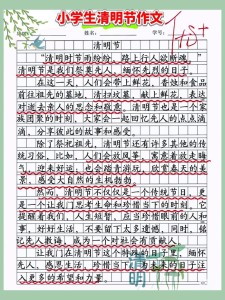 小学生清明节作文
姓名:
学号:
清明节
"清明时节雨纷纷,路上行人欲断魂。"
清明节是我们祭奠先人、缅怀先烈的日子。
在这一天,人们会带上鲜花、香烛和食品
前往祖先的墓地,清扫坟墓、献上鲜花,表
达对逝去亲人的思念和敬意。清明节也是一个家
族团聚的时刻,大家会一起回忆先人的点点滴
滴,分享彼此的故事和感受。
除了祭祀祖先,清明节还有许多其他的传
统习俗。比如,人们会放风筝,寓意着放走晦
气,迎来好运。也会踏青游玩,欣赏春天的美
景,感受大自然的生机勃勃。
然而,清明节不仅仅是一个传统节日,更
是一个让我们思考生命和珍惜当下的时刻。它
提醒我们,人生短暂,应当珍惜眼前的人和
事,好好生活,不要留下太多遗憾。同时,铭
记先人教诲,成为一个对社会有贡献人
让我们在这个特殊的日子里,缅怀
先人,感恩生活,珍惜当下,为未来的日子注
入更多的希望和力量。
清明